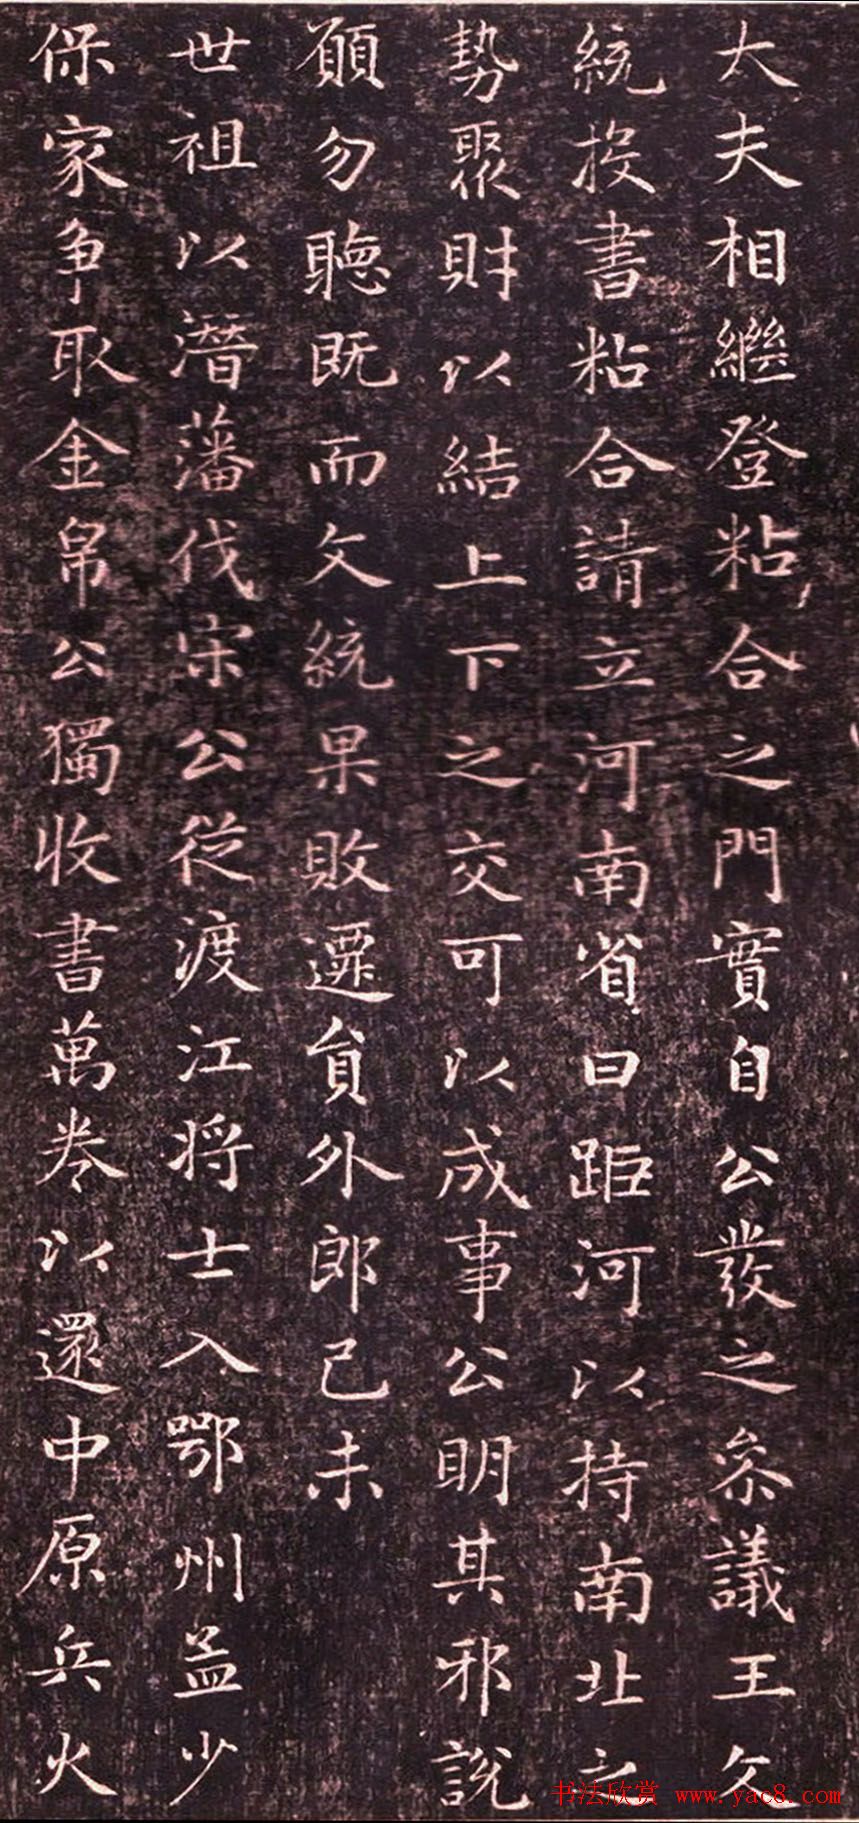 太夫相繼登粘合之門實自公發之叅議王文
統投書粘合請立河南省曰距河以持南北之
勢聚財以結上下之交可以成事公明其邪說
願勿聽既而文統果敗遷貟外郎己未
世祖以潛藩伐宋公從渡江将士入鄂州孟少
保家爭取金帛公獨收書萬卷以還中原兵火
书法欣赏 www.yac8.com